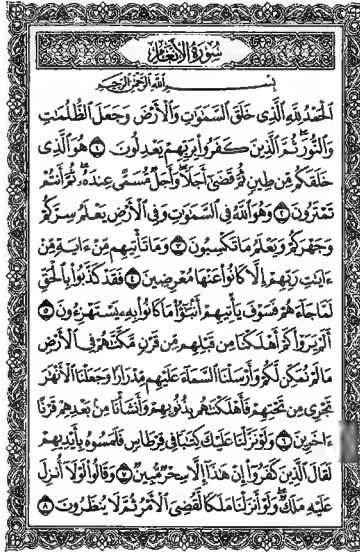 سُورَةُ الْأَنْعَامِ
بِسْمِ اللَّهِ الرَّحْمَٰنِ الرَّحِيمِ
الْحَمْدُ لِلَّهِ الَّذِي خَلَقَ السَّمَاوَاتِ وَالْأَرْضَ وَجَعَلَ الظُّلُمَاتِ
وَالنُّورَ ثُمَّ الَّذِينَ كَفَرُوا بِرَبِّهِمْ يَعْدِلُونَ ١ هُوَ الَّذِي
خَلَقَكُم مِّن طِينٍ ثُمَّ قَضَىٰ أَجَلًا وَأَجَلٌ مُّسَمًّى عِندَهُ ثُمَّ أَنتُمْ
تَمْتَرُونَ ٢ وَهُوَ اللَّهُ فِي السَّمَاوَاتِ وَفِي الْأَرْضِ يَعْلَمُ سِرَّكُمْ
وَجَهْرَكُمْ وَيَعْلَمُ مَا تَكْسِبُونَ ٣ وَمَا تَأْتِيهِم مِّنْ ءَايَةٍ مِّنْ
ءَايَاتِ رَبِّهِمْ إِلَّا كَانُوا عَنْهَا مُعْرِضِينَ ٤ فَقَدْ كَذَّبُوا بِالْحَقِّ
لَمَّا جَاءَهُمْ فَسَوْفَ يَأْتِيهِمْ أَنبَاؤُا مَا كَانُوا بِهِ يَسْتَهْزِءُونَ ٥
أَلَمْ يَرَوْا كَمْ أَهْلَكْنَا مِن قَبْلِهِم مِّن قَرْنٍ مَّكَّنَّاهُمْ فِي الْأَرْضِ
مَا لَمْ نُمَكِّن لَّكُمْ وَأَرْسَلْنَا السَّمَاءَ عَلَيْهِم مِّدْرَارًا وَجَعَلْنَا الْأَنْهَارَ
تَجْرِي مِن تَحْتِهِمْ فَأَهْلَكْنَاهُم بِذُنُوبِهِمْ وَأَنشَأْنَا مِن بَعْدِهِمْ قَرْنًا
ءَاخَرِينَ ٦ وَلَوْ نَزَّلْنَا عَلَيْكَ كِتَابًا فِي قِرْطَاسٍ فَلَمَسُوهُ بِأَيْدِيهِمْ
لَقَالَ الَّذِينَ كَفَرُوا إِنْ هَٰذَا إِلَّا سِحْرٌ مُّبِينٌ ٧ وَقَالُوا لَوْلَا أُنزِلَ
عَلَيْهِ مَلَكٌ وَلَوْ أَنزَلْنَا مَلَكًا لَّقُضِيَ الْأَمْرُ ثُمَّ لَا يُنظَرُونَ ٨